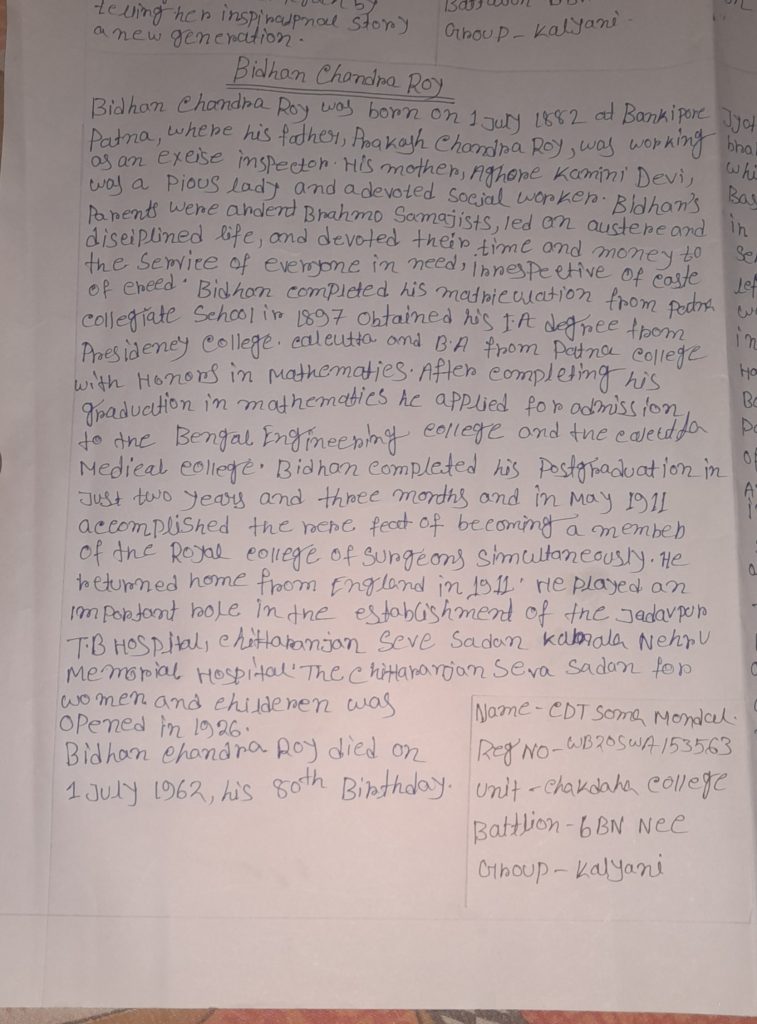 telling her inspirational story
a new generation.
Group - Kalyani
Bidhan Chandra Roy
Bidhan Chandra Roy was born on 1 July 1882 at Bankipore
Patna, where his father, Prakash Chandra Roy, was working
as an exeise inspector. His mother, Aghore Kamini Devi,
was a Pious lady and a devoted social worker. Bidhan's
Parents were ardent Brahmo Samajists, led an austere and
diseiplined life, and devoted their time and money to
the Serviee of everyone in need, irrespeetive of easte
of ereed. Bidhan completed his matrieulation from Patna
collegiate School in 1897 obtained his I.A degree from
Presideney College. calcutta and B.A from Patna college
with Honors in Mathematies. After completing his
graduation in mathematies he applied for admission
to the Bengal Engineering eollege and the calcutta
Medical eollege. Bidhan completed his Postgraduation in
Just two years and three months and in May 1911
accomplished the rere feat of becoming a member
of the Royal eollege of surgeons simultaneously. He
returned home from England in 1911. He played an
important role in the establishment of the Jadavpur
T.B Hospital, chittaranjan Seve Sadan kamala Nehru
Memorial Hospital. The chittaranjan Seva Sadan for
women and childeren was
opened in 1926.
Bidhan chandra Roy died on
1 July 1962, his 80th Birthday.
Name - CDT Soma Mondal.
Reg No - WB20SWA153563
Unit - Chakdaha College
Battlion - 6BN Nee
Group - Kalyani